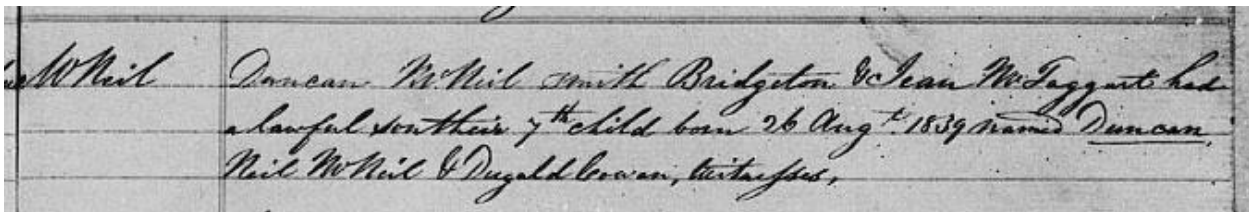 McNeil
Duncan McNeil smith Bridgeton & Jean McTaggart had
a lawful son their 7th child born 26 Augt. 1839 named Duncan,
Neil McNeil & Dugald Cowan, witnesses,